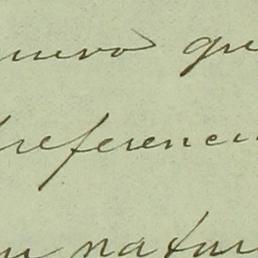 nuevo que
preferenci
su natur